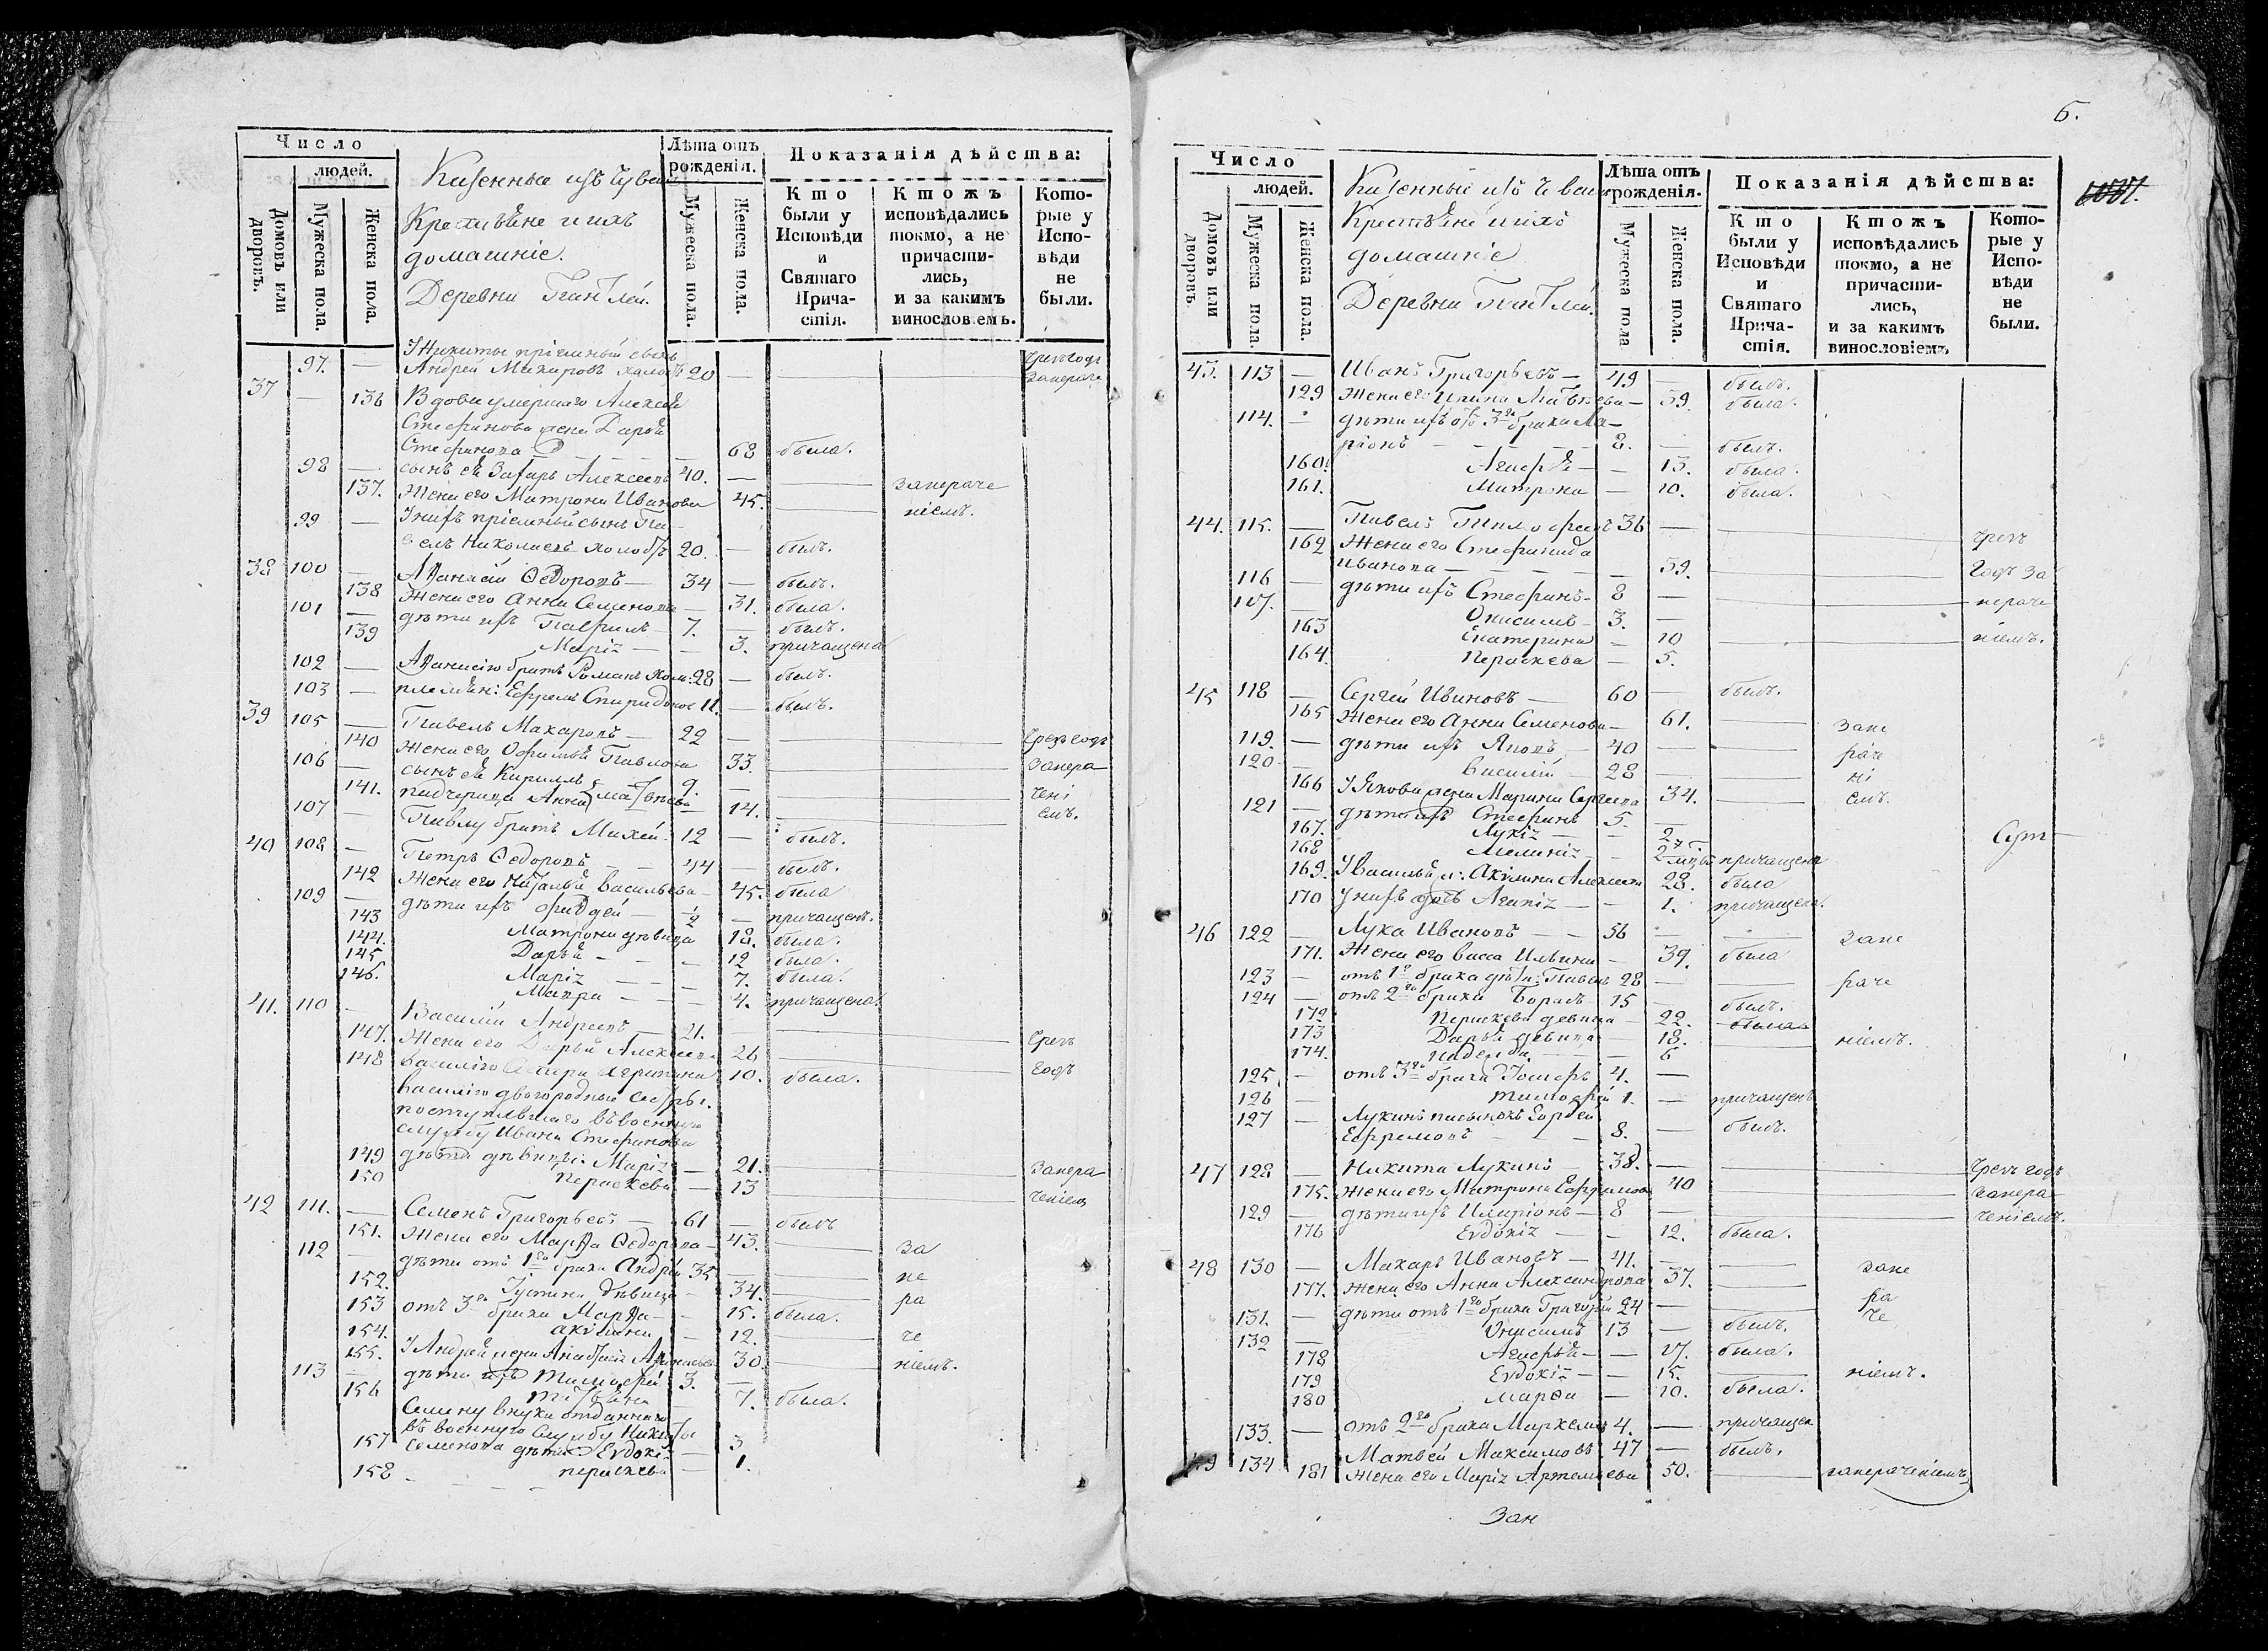 Число
людей.
Домовъ или дворовъ.
Мужеска пола.
Женска пола.
Казенные изъ Чуваш
Крестьяне и ихъ
домашніе.
Деревни
Лѣта отъ рожденія.
Мужеска пола.
Женска пола.
Показанія дѣйства:
Кто были у Исповѣди и Святаго Причастія.
Ктожъ исповѣдались токмо, а не причастились, и за какимъ винословіемъ.
Которые у Исповѣди не были.
97. — Андрей Макаровъ холостъ 20 —
37 — 136 Вдова умершаго Алексея
Стефанова жена Дарья
Стефанова — 68 была.
98 — сынъ её Захаръ Алексеевъ 40. — запераче
137. Жена его Матрона Иванова 45. ніемъ.
99 — У нихъ пріемный сынъ Па
велъ Николаевъ холостъ 20. — былъ.
38 100 — Аѳанасій Ѳедоровъ — 34 — былъ.
138 Жена его Анна Семенова — 31. была.
101 — дѣти ихъ Гаврилъ — 7. — былъ.
139 Марія — — 3. причащена
102 — Аѳанасію братъ Романъ хол: 28 — былъ.
103 — племян: Ефремъ Спиридонов 11. — былъ.
39 105 — Павелъ Макаровъ — 22 — чрезъ годъ
140 Жена его Офимья Павлова 33. запера
106 — сынъ её Кириллъ 9. — чені
141. падчерица Анна Матвеева 14. емъ.
107 — Павлу братъ Михей 12 — былъ.
40 108 — Петръ Ѳедоровъ — 44 — былъ.
142 Жена его Наталья Васильева — 45. была
109 — дѣти ихъ Фаддей — 1/2 — причащенъ.
143 Матрона дѣвица 18. была.
144. Дарья — 12 была.
145 Марія — 7. была.
146. Мавра — 4. причащена.
41. 110 — Василій Андреевъ — 21.
147. Жена его Дарья Алексеева 26 чрезъ
148 Василію сестра 10. была. годъ
Василію двоюродный
поступлвшаго въ военную
службу Ивана Стефанова
149 дѣти дѣвицы: Марія — 21. запера
150 Параскева — 13 ченіем
42 111. — Семенъ Григорьевъ — 61 — былъ
151. Жена его Марѳа Ѳедорова — 43. за
112 — дѣти отъ 1го брака Андрей 35 — пе
152. Устина дѣвица — 34. ра
153 отъ 3го брака Марѳа — 15. была.
154. Акілина — 12. че
155. У Андрея жена 30. ніемъ.
113 — дѣти ихъ Тимофей 3. —
156 Татьяна 7. была.
Семену внуки отданнаго
въ военную службу Никиты
157 Семенова дѣти Евдокія — 3
158 Параскева — 1.
6.
Число
людей.
Домовъ или дворовъ.
Мужеска пола.
Женска пола.
Казенные изъ Чуваш
Крестьяне и ихъ
домашніе
Деревни
Лѣта отъ рожденія.
Мужеска пола
Женска пола.
Показанія дѣйства:
Кто были у Исповѣди и Святаго Причастія.
Ктожъ исповѣдались токмо, а не причастились, и за какимъ винословіемъ
Которые у Исповѣди не были.
43. 113 — Иванъ Григорьевъ — 49 — былъ.
129 Жена его Ирина Матвеева — 59. была.
114. — дѣти ихъ отъ 3го брака Ла-
ріонъ — 8. — былъ.
160. Агафья — — 13. была.
161. Матрона — 10. была.
44. 115. — Павелъ Тимофеевъ 36 — чрезъ
162 Жена его Стефанида
Иванова — 39. годъ за
116 — дѣти ихъ Стефанъ — 8 — пераче
117. — Онисимъ — 3. —
163 Екатерина — 10 ніемъ.
164. Параскева — 5.
45 118 — Сергей Ивановъ — 60 — былъ.
165 Жена его Анна Семенова — 61. запе
119. — дѣти ихъ Яковъ — 40 — раче
120 — Василій — 28 — ні
166 У Якова жена Марина Сергеева 34. емъ.
121 — дѣти ихъ Стефанъ 5. —
167. Лукія — — 2
168 Меланія — причащена
169. У Василья ж: Акилина Алексеева 28. была
170 У нихъ дочь Агапія — — 1. причащена.
46 122 — Лука Ивановъ — — 56 — запе
171. Жена его Васса Ильина — 39. была
123 — отъ 1го брака дѣти: Павелъ 28 — раче
124 — отъ 2го брака Борисъ — 15 — былъ.
172 Параскева девица — 22. была
173 Дарья девица — 18. ніемъ.
174. Надежда — — 6
125. — отъ 3го брака Іосифъ 4. —
126 — Тимофей 1. — причащенъ
127 — Лукинъ пасынокъ Гордей
Ефремовъ — — — 8. — былъ.
47 128 — Никита Лукинъ — 38. — чрезъ годъ
175. Жена его Матрона Ефимова 40 запера
129 — дѣти ихъ Иларіонъ — 8 — ченіемъ.
176 Евдокія — — 12. была.
48 130 — Макаръ Ивановъ — 41. — запе
177. Жена его Анна Александрова 37. ра
131. — дѣти отъ 1го брака Григорій 24 — че
132 — Онисимъ 13 — былъ.
178 Агафья — — 17. была.
179 Евдокія — — 15. ніемъ.
180 Марѳа — 10. была.
133. — отъ 2го брака Маркелъ 4. — причащен
49 134 Матвей Максимовъ 47 — былъ.
181 Жена его Марія Артемьева 50. заперачениемъ
Зан